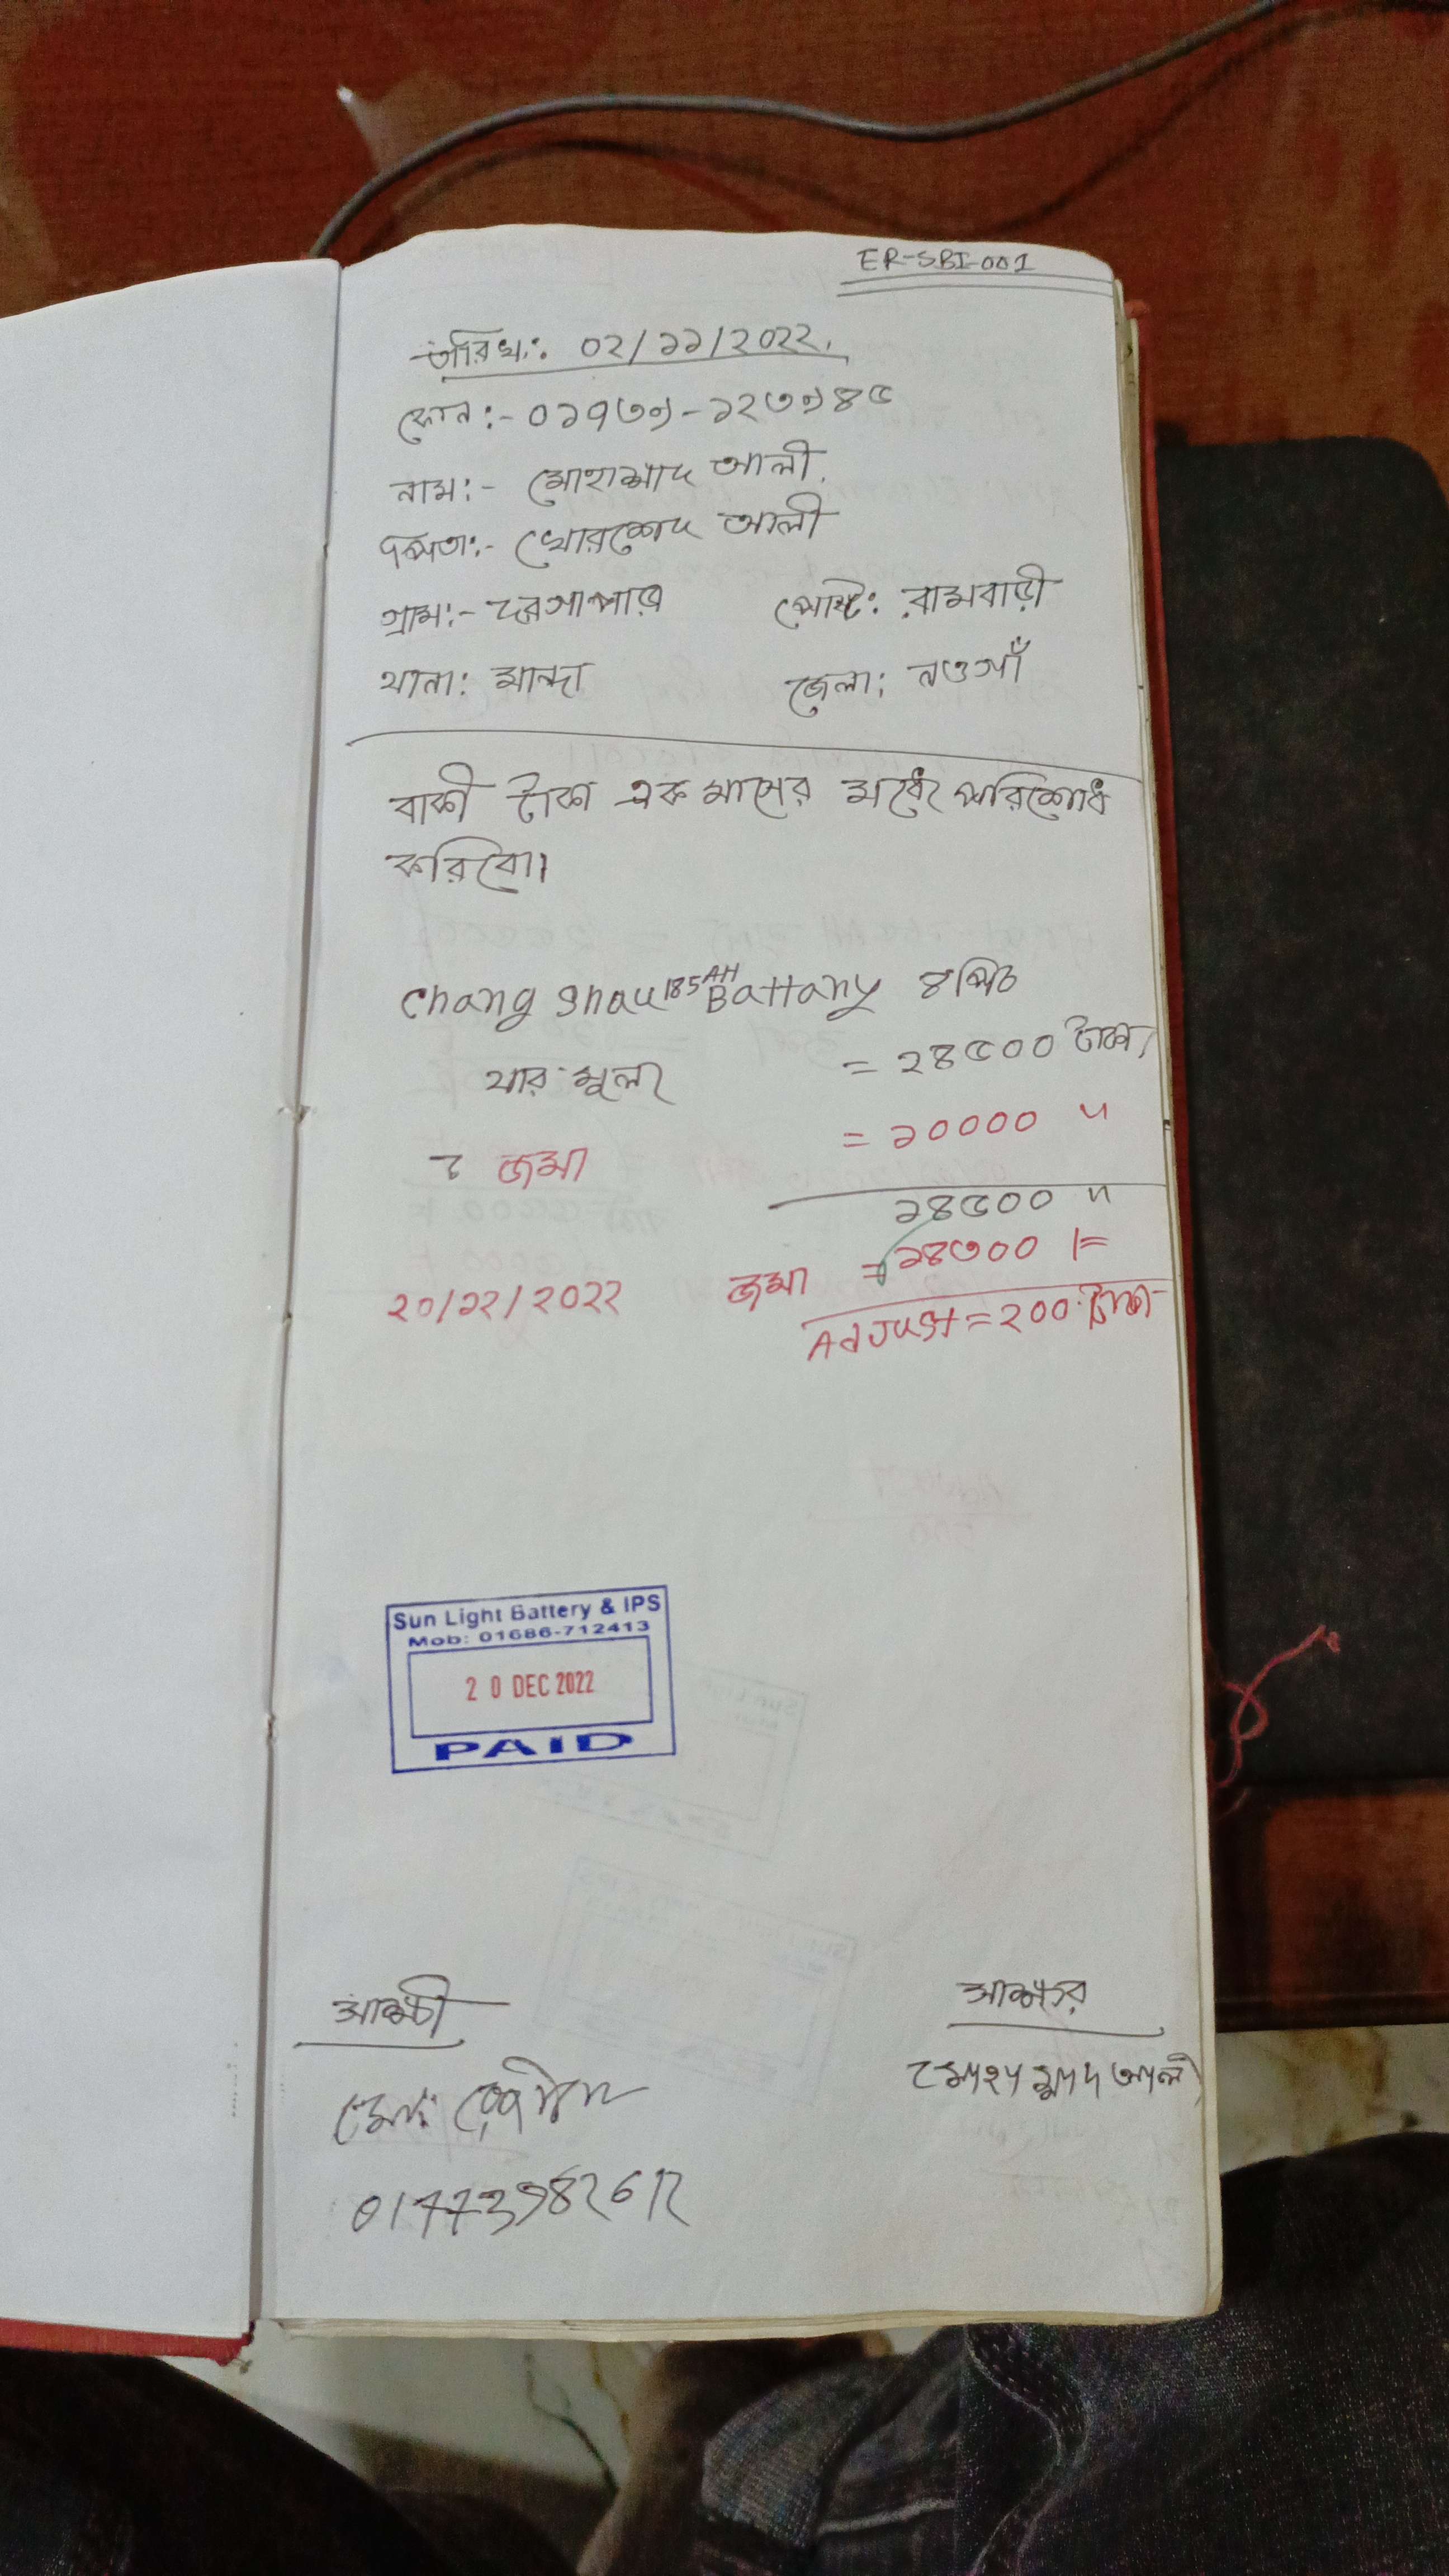 ER-SBI-001
তারিখ:. ০২/১১/২০২২.
ফোন:- ০১৭৩৭-১২৩৭৪৫
নাম:- মোহাম্মাদ আলী.
পিতা:- খোরশেদ আলী
গ্রাম:- দরগাপাড়া পোষ্ট: বামবাড়ী
থানা: মান্দা জেলা: নওগাঁ
বাকী টাকা এক মাসের মধ্যে পরিশোধ
করিবো।
Chang Shau 185AH Battary ৪ পিচ
যার মূল্য = ২৪৫০০ টাকা
জমা = ১০০০০ "
১৪৫০০ "
২০/১২/২০২২ জমা = ১৪৩০০ /=
AdJust = ২০০ টাকা
Sun Light Battery & IPS
Mob: 01686-712413
20 DEC 2022
PAID
সাক্ষী স্বাক্ষর
মোঃ মোহাম্মাদ আলী